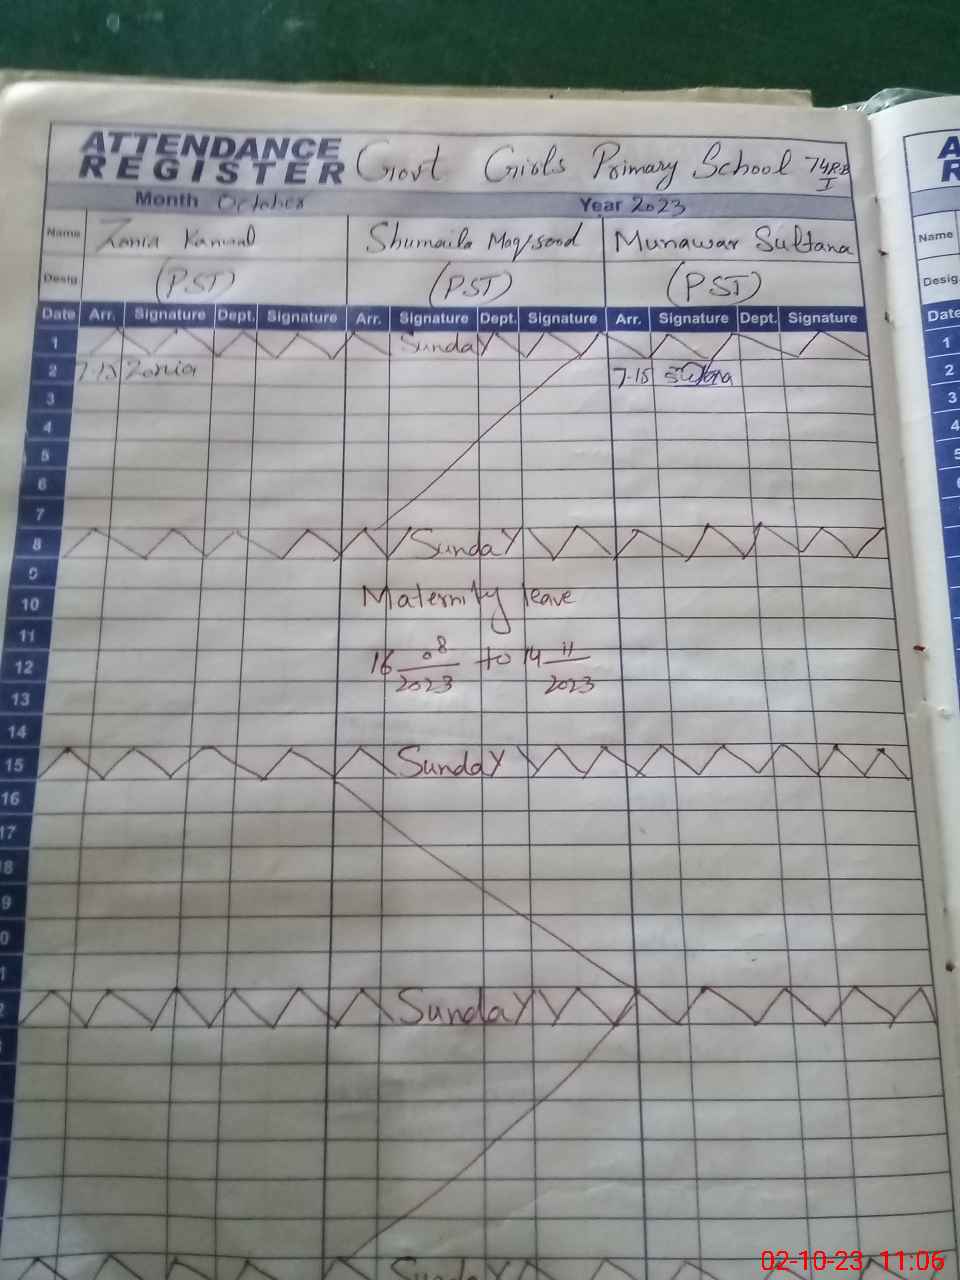 ATTENDANCE REGISTER Govt Girls Primary School 74RB I
Month October Year 2023
Name Zonia Kanwal Shumaila Maqsood Munawar Sultana
Desig (PST) (PST) (PST)
Date Arr. Signature Dept. Signature Arr. Signature Dept. Signature Arr. Signature Dept. Signature
1 Sunday
2 7-15 Zonia 7-15 Sultana
3
4
5
6
7
8 Sunday
9
10 Maternity leave
11
12 16 08/2023 to 14 11/2023
13
14
15 Sunday
16
17
8
9
0
1
2 Sunday
Sunday
A
R
Name
Desig.
Date
1
2
3
4
5
02-10-23 11:06